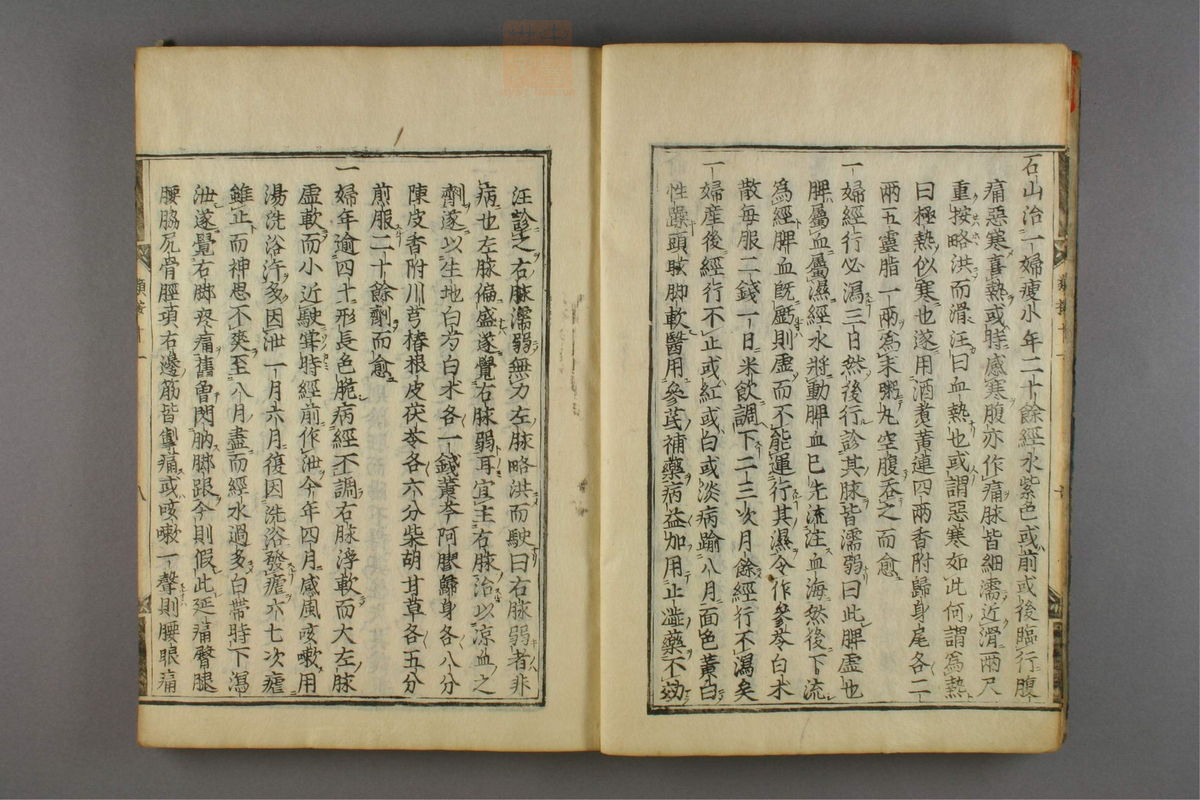 石山治一婦瘦小年二十餘經水紫色或前或後臨行腹
痛惡寒喜熱或時感寒腹亦作痛脉皆細濡近滑兩尺
重按略洪而滑汪曰血熱也或謂惡寒如此何謂為熱
曰極熱似寒也遂用酒煮黄連四兩香附歸身尾各二
兩五靈脂一兩為末粥丸空腹吞之而愈
一婦經行必瀉三日然後行診其脉皆濡弱曰此脾虛也
脾屬血屬濕經水將動脾血已先流注血海然後下流
為經脾血旣虧則虛而不能運行其濕令作參苓白朮
散每服二錢一日米飲調下二三次月餘經行不瀉矣
一婦產後經行不止或紅或白或淡病踰八月面色黄白
性躁頭眩脚軟醫用參芪補藥病益加用止澁藥不効
汪診之右脉濡弱無力左脉略洪而駛曰右脉弱者非
病也左脉偏盛遂覺右脉弱耳宜主右脉治以凉血之
劑遂以生地白芍白朮各一錢黄芩阿膠歸身各八分
陳皮香附川芎椿根皮茯苓各六分柴胡甘草各五分
煎服二十餘劑而愈
一婦年逾四十形長色脆病經不調右脉浮軟而大左脉
虛軟而小近駛嘗時經前作泄今年四月感風咳嗽用
湯洗浴汗多因泄一月六月復因洗浴發瘧六七次瘧
雖止而神思不爽至八月盡而經水過多白帶時下瀉
泄遂覺右脚疼痛舊曾閃肭脚跟今則假此延痛臀腿
腰脇尻骨脛項右邊筋皆掣痛或咳嗽一聲則腰眼痛